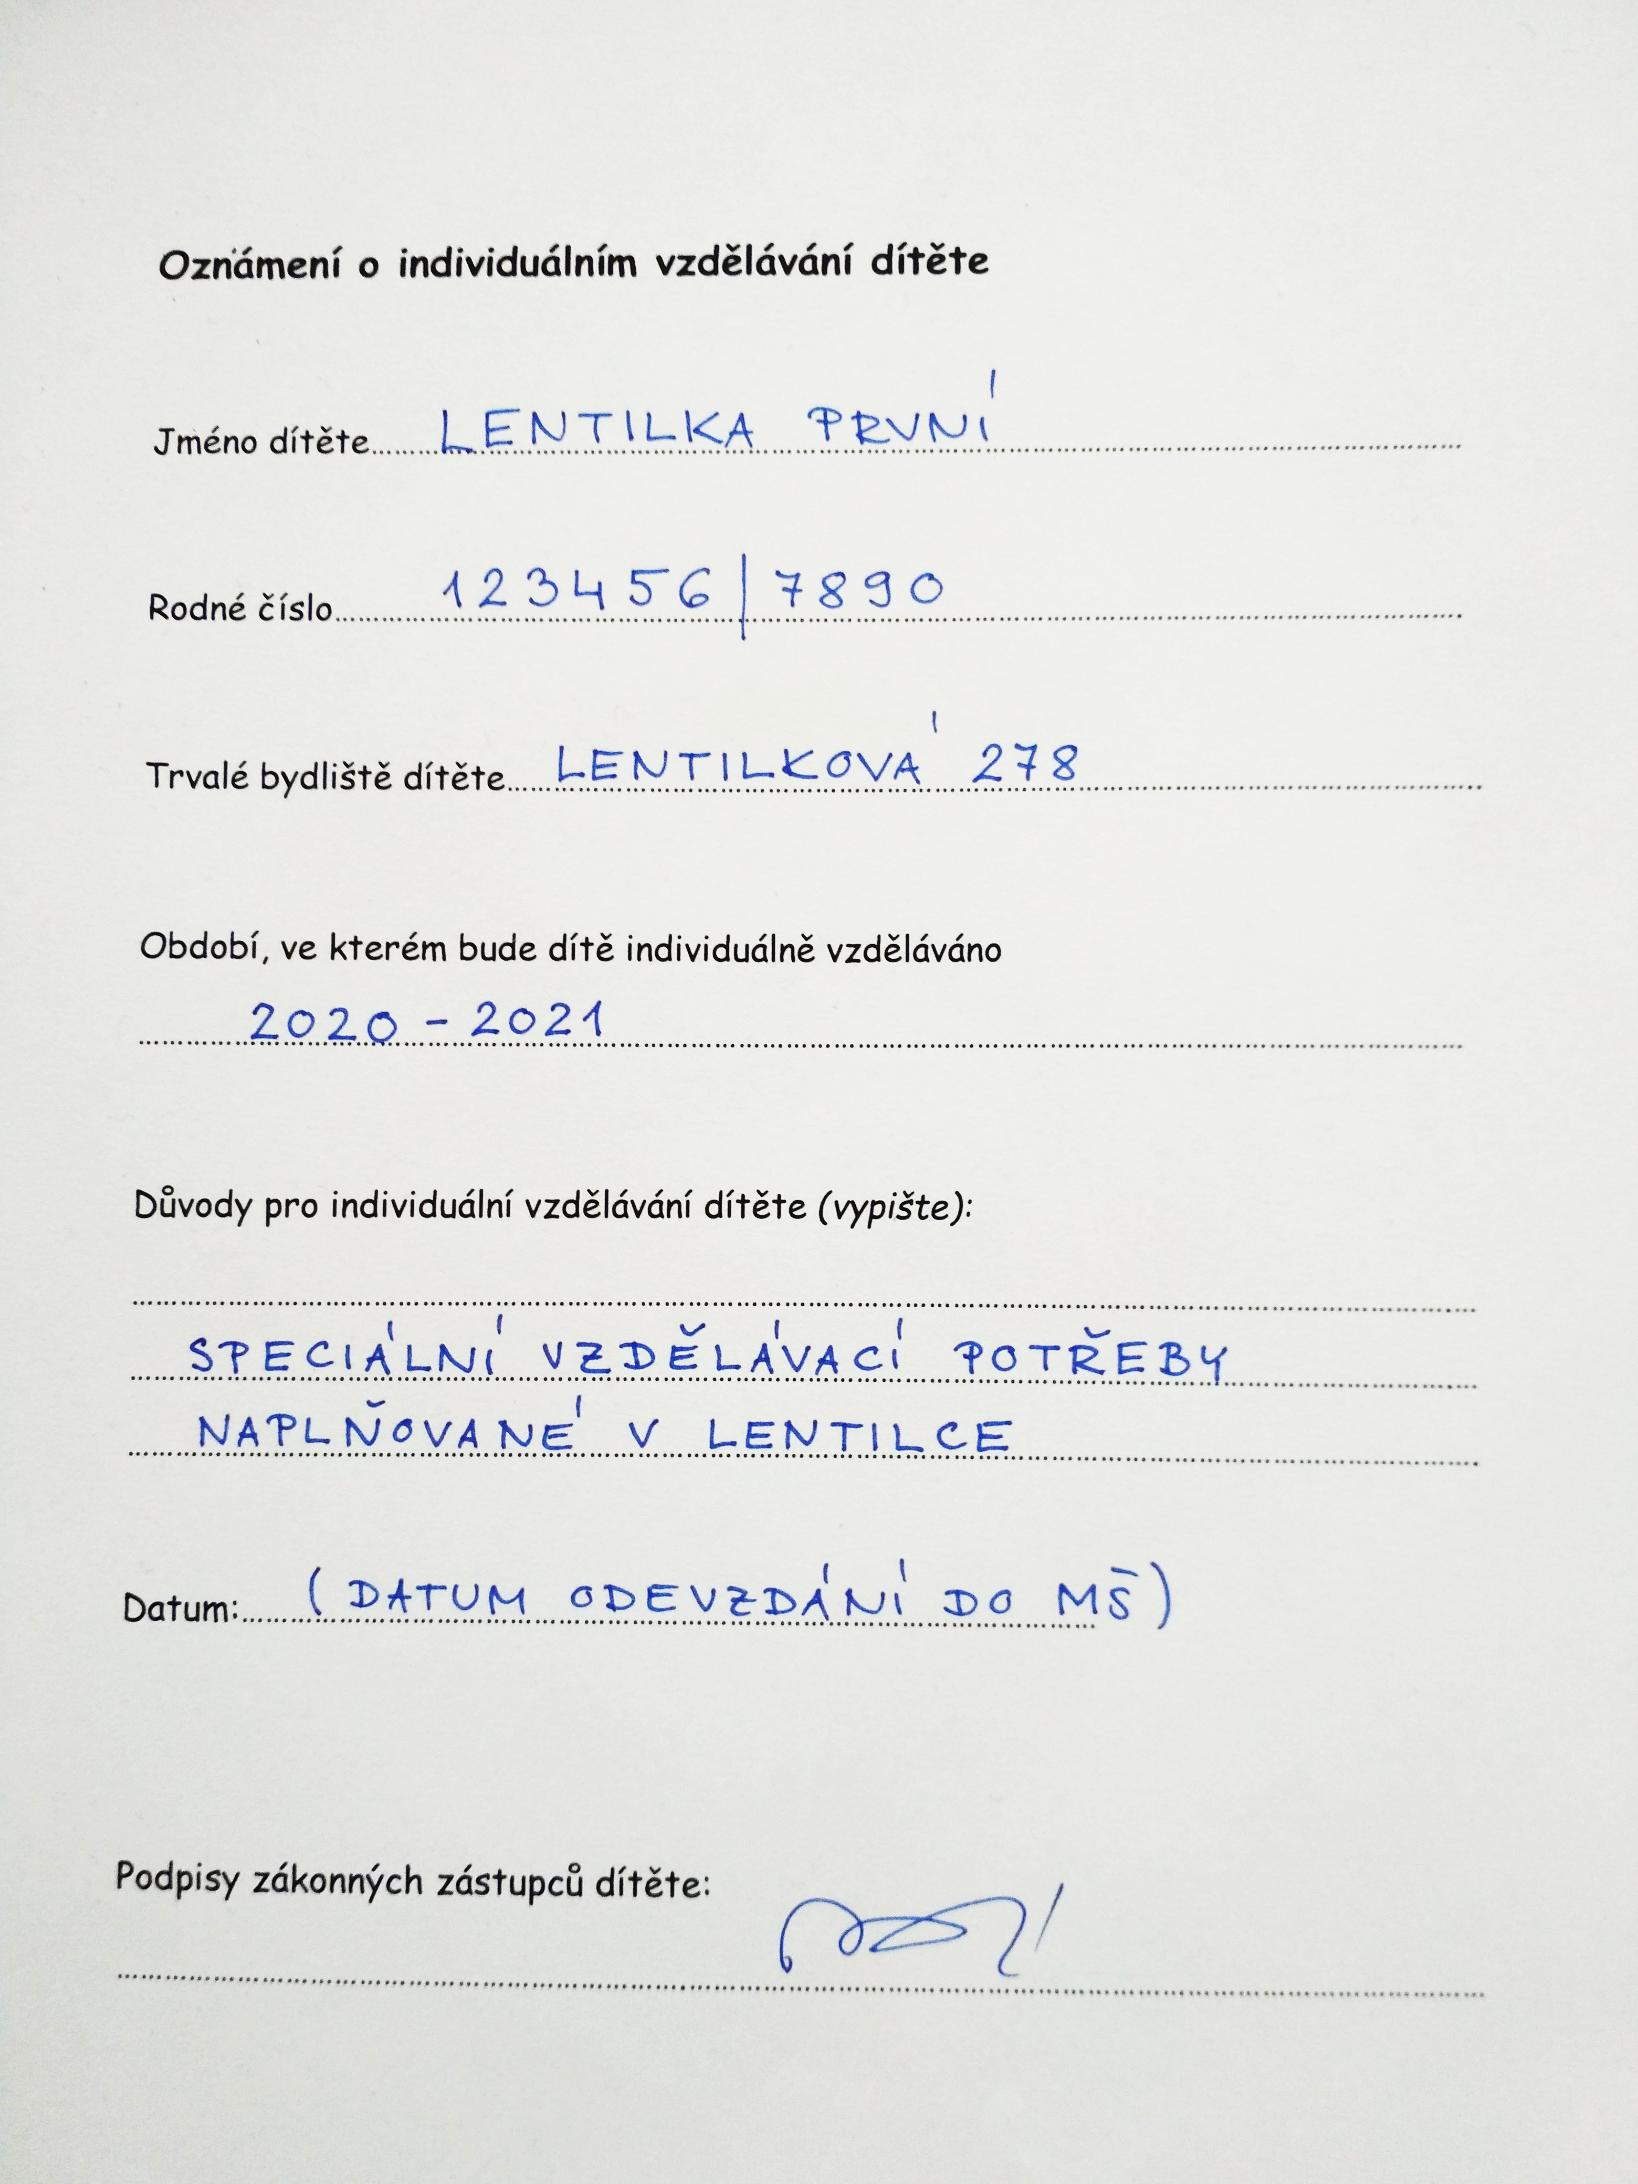 Oznámení o individuálním vzdělávání dítěte
Jméno dítěte LENTILKA PRVNÍ
Rodné číslo 123456/7890
Trvalé bydliště dítěte LENTILKOVÁ 278
Období, ve kterém bude dítě individuálně vzděláváno
2020 - 2021
Důvody pro individuální vzdělávání dítěte (vypište):
SPECIÁLNÍ VZDĚLÁVACÍ POTŘEBY
NAPLŇOVANÉ V LENTILCE
Datum: (DATUM ODEVZDÁNÍ DO MŠ)
Podpisy zákonných zástupců dítěte: